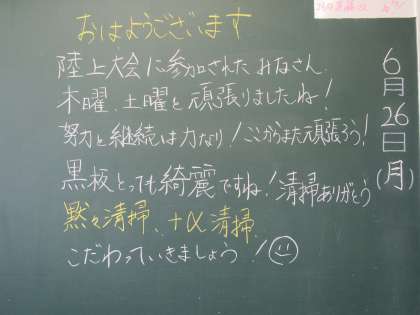 おはようございます
陸上大会に参加されたみなさん、
木曜、土曜と頑張りましたね！
努力と継続は力なり！ここからまた頑張ろう！
黒板とっても綺麗ですね！清掃ありがとう
黙々清掃、+α清掃、
こだわっていきましょう！
6月26日(月)